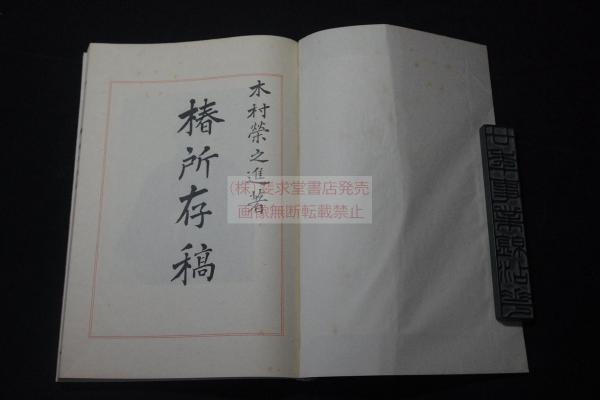 木村榮之進著
椿所存稿
(株)斐求堂書店発売
画像無断転載禁止